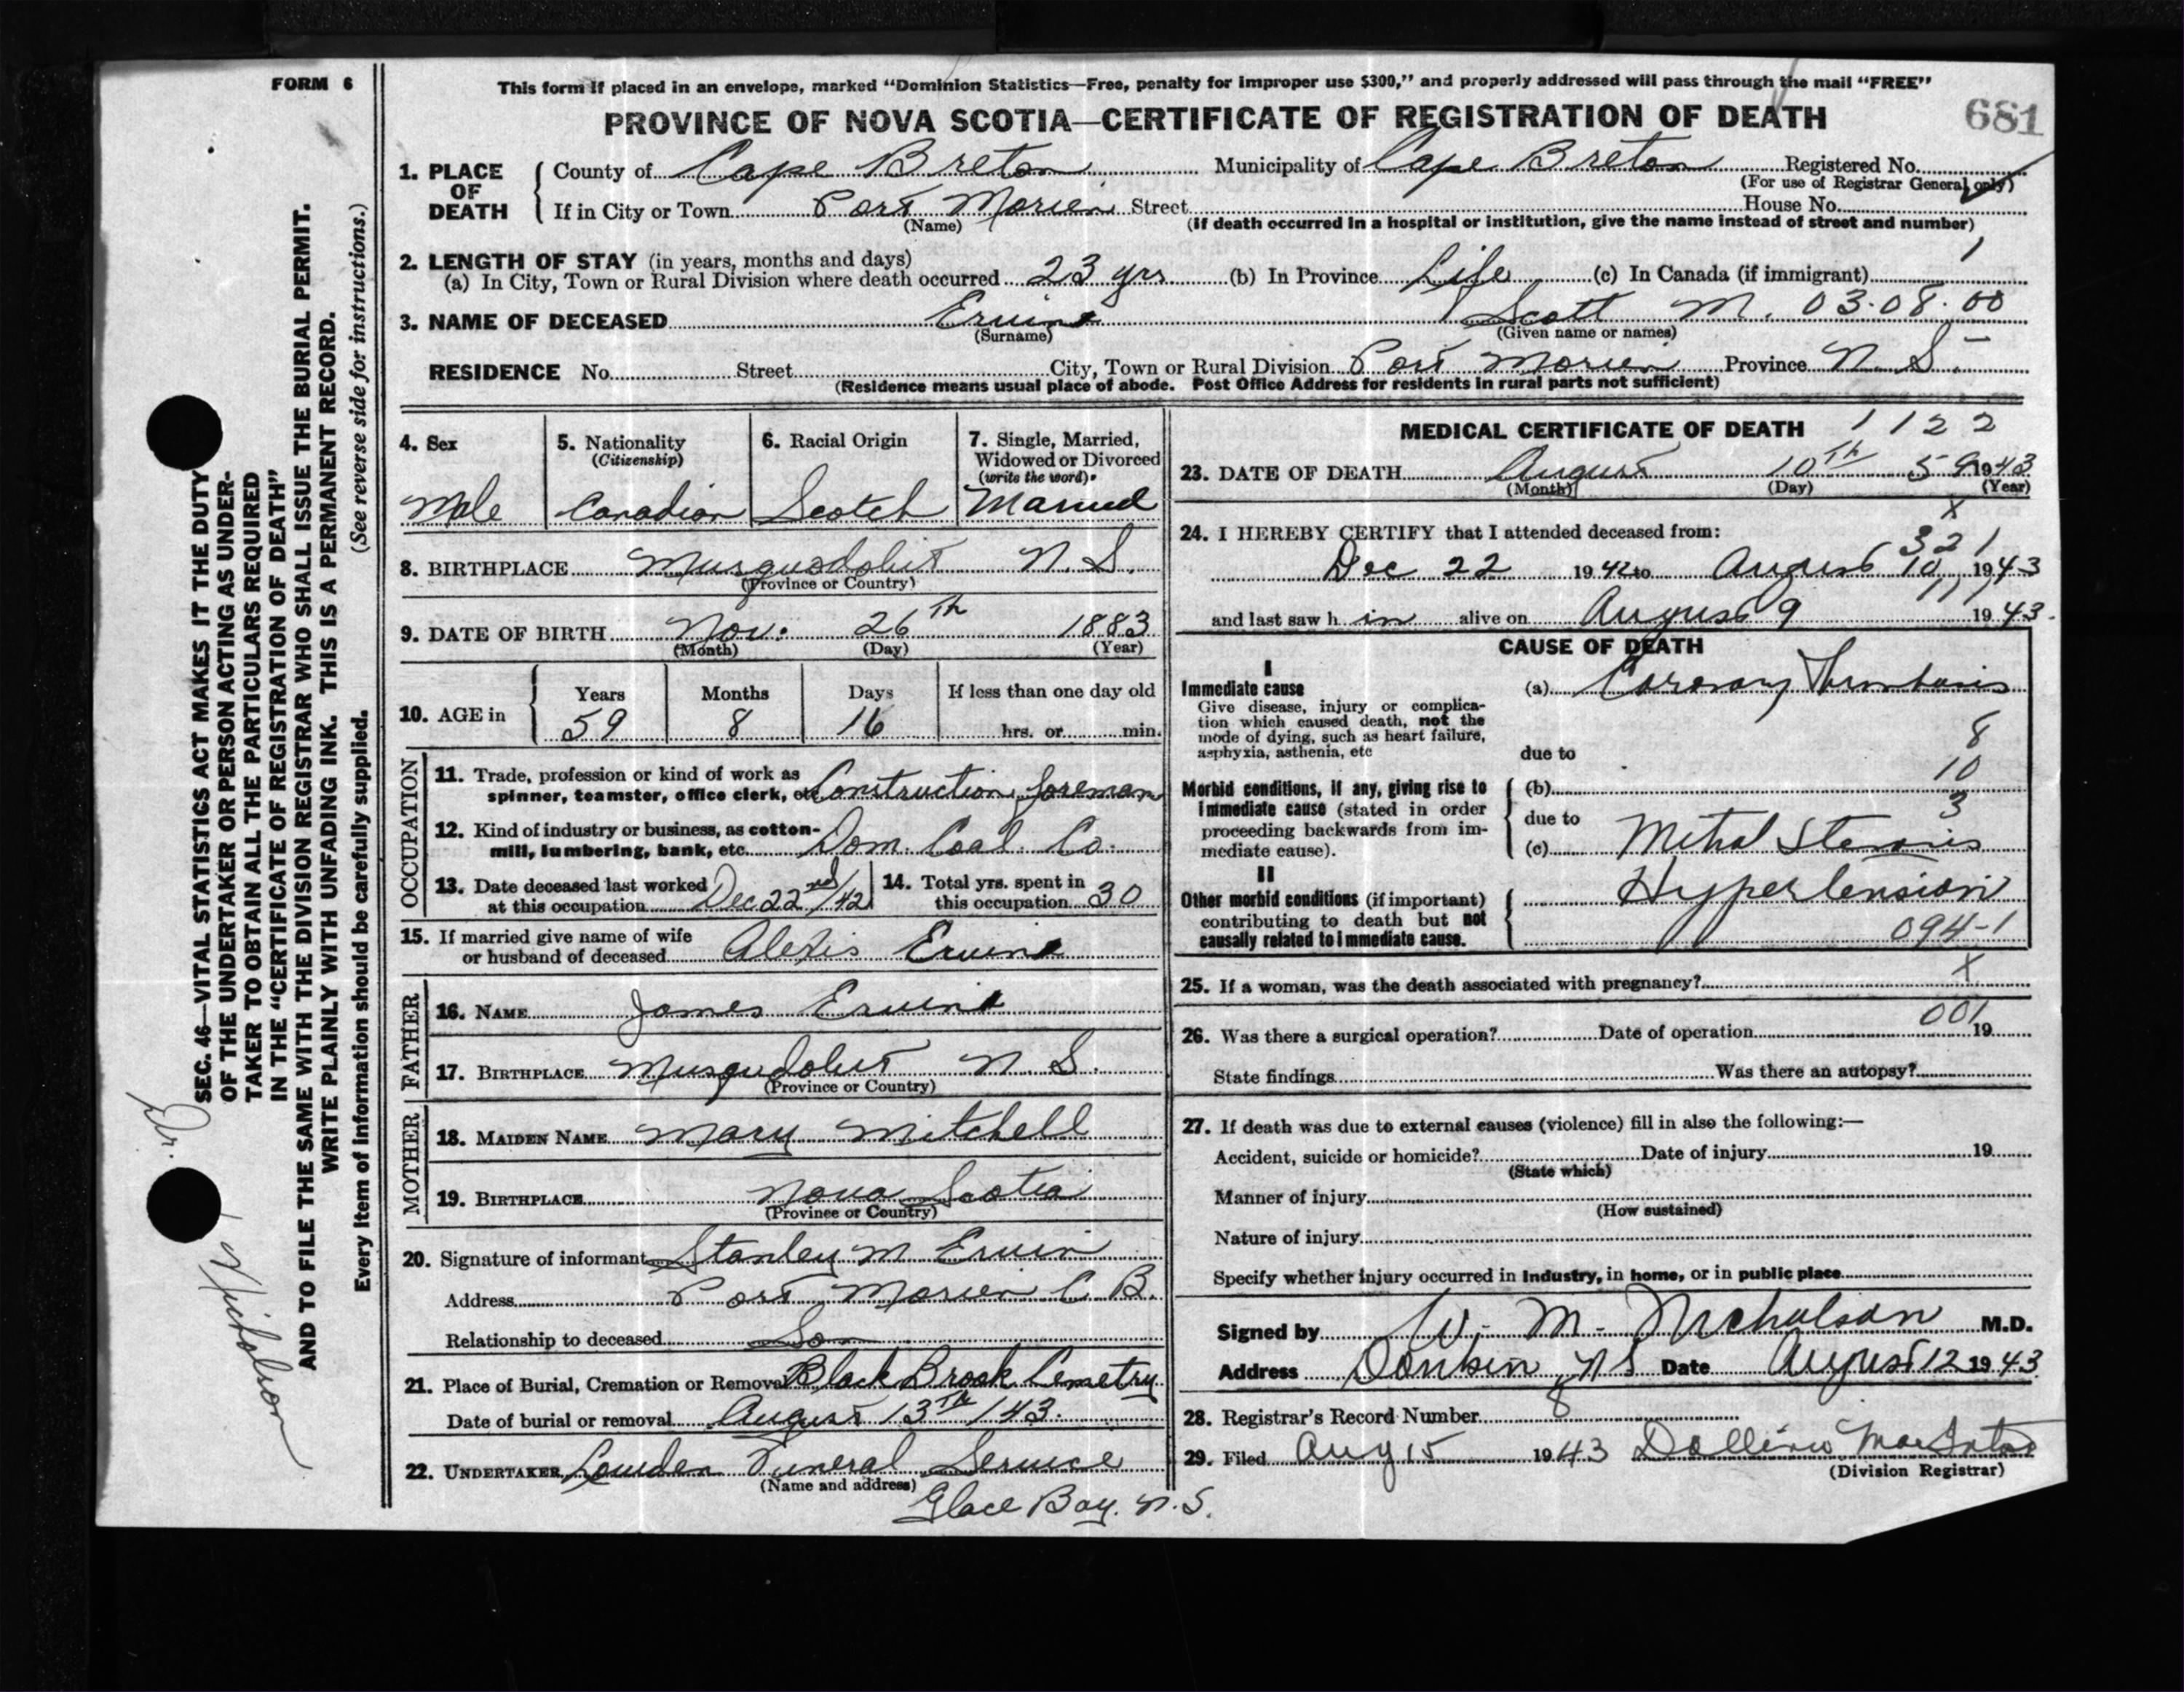 FORM 6
This form if placed in an envelope, marked “Dominion Statistics—Free, penalty for improper use $300,” and properly addressed will pass through the mail “FREE”
PROVINCE OF NOVA SCOTIA—CERTIFICATE OF REGISTRATION OF DEATH
681
1. PLACE OF DEATH
County of Cape Breton Municipality of Cape Breton Registered No.
(For use of Registrar General only)
If in City or Town Port Morien Street House No.
(Name) (if death occurred in a hospital or institution, give the name instead of street and number)
2. LENGTH OF STAY (in years, months and days) 1
(a) In City, Town or Rural Division where death occurred 23 yrs (b) In Province Life (c) In Canada (if immigrant)
3. NAME OF DECEASED Ervine Scott M. 03·08·00
(Surname) (Given name or names)
RESIDENCE No. Street City, Town or Rural Division Port Morien Province N. S.
(Residence means usual place of abode. Post Office Address for residents in rural parts not sufficient)
4. Sex Male
5. Nationality (Citizenship) Canadian
6. Racial Origin Scotch
7. Single, Married, Widowed or Divorced (write the word) Married
8. BIRTHPLACE Musquodobit N. S.
(Province or Country)
9. DATE OF BIRTH Nov. 26th 1883
(Month) (Day) (Year)
10. AGE in Years 59 Months 8 Days 16 If less than one day old hrs. or min.
OCCUPATION
11. Trade, profession or kind of work as
spinner, teamster, office clerk, etc. Construction foreman
12. Kind of industry or business, as cotton-
mill, lumbering, bank, etc. Dom. Coal. Co.
13. Date deceased last worked
at this occupation Dec 22nd/42
14. Total yrs. spent in
this occupation 30
15. If married give name of wife
or husband of deceased Alexis Ervine
FATHER
16. NAME James Ervine
17. BIRTHPLACE Musqudobit N. S.
(Province or Country)
MOTHER
18. MAIDEN NAME Mary Mitchell
19. BIRTHPLACE Nova Scotia
(Province or Country)
20. Signature of informant Stanley M Ervin
Address Port Morien C B.
Relationship to deceased Son
21. Place of Burial, Cremation or Removal Black Brook Cemetry
Date of burial or removal August 13th /43.
22. UNDERTAKER Funeral Service
(Name and address)
Glace Bay. N. S.
MEDICAL CERTIFICATE OF DEATH 1 1 2 2
23. DATE OF DEATH August 10th 59 1943
(Month) (Day) (Year)
X
24. I HEREBY CERTIFY that I attended deceased from:
321
Dec 22 1942 to August 10 1943
111
and last saw h im alive on August 9 1943.
CAUSE OF DEATH
I
Immediate cause
Give disease, injury or complica-
tion which caused death, not the
mode of dying, such as heart failure,
asphyxia, asthenia, etc
(a) Coronary Thrombosis
8
due to
10
Morbid conditions, if any, giving rise to
immediate cause (stated in order
proceeding backwards from im-
mediate cause).
(b)
3
due to
(c) Mitral Stenosis
II
Other morbid conditions (if important)
contributing to death but not
causally related to immediate cause.
Hypertension
094-1
X
25. If a woman, was the death associated with pregnancy?
001
26. Was there a surgical operation? Date of operation 19
State findings Was there an autopsy?
27. If death was due to external causes (violence) fill in also the following:—
Accident, suicide or homicide? Date of injury 19
(State which)
Manner of injury
(How sustained)
Nature of injury
Specify whether injury occurred in industry, in home, or in public place
Signed by W. M. Nicholson M.D.
Address Donkin N S Date August 12 1943
28. Registrar's Record Number 8
29. Filed Aug 15 1943
(Division Registrar)
SEC. 46—VITAL STATISTICS ACT MAKES IT THE DUTY
OF THE UNDERTAKER OR PERSON ACTING AS UNDER-
TAKER TO OBTAIN ALL THE PARTICULARS REQUIRED
IN THE “CERTIFICATE OF REGISTRATION OF DEATH”
AND TO FILE THE SAME WITH THE DIVISION REGISTRAR WHO SHALL ISSUE THE BURIAL PERMIT.
WRITE PLAINLY WITH UNFADING INK. THIS IS A PERMANENT RECORD.
Every item of information should be carefully supplied. (See reverse side for instructions.)
Dr. Nicholson